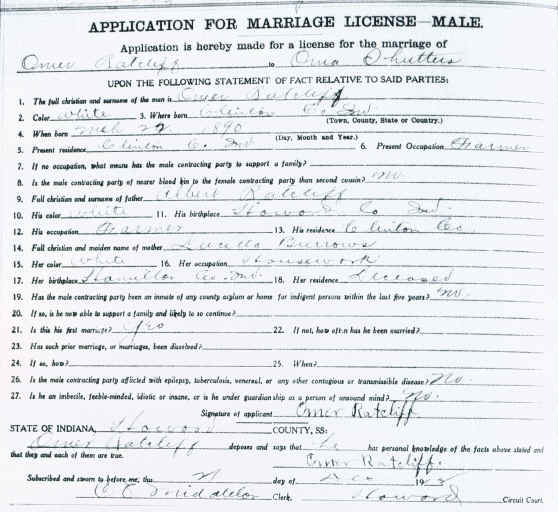 APPLICATION FOR MARRIAGE LICENSE—MALE.
Application is hereby made for a license for the marriage of
Omer Ratcliff to Oma Shutters
UPON THE FOLLOWING STATEMENT OF FACT RELATIVE TO SAID PARTIES:
1. The full christian and surname of the man is Omer Ratcliff
2. Color White 3. Where born Clinton Co Ind.
(Town, County, State or Country.)
4. When born Mch 22 1890
(Day, Month and Year.)
5. Present residence Clinton Co. Ind 6. Present Occupation Farmer
7. If no occupation, what means has the male contracting party to support a family?
8. Is the male contracting party of nearer blood kin to the female contracting party than second cousin? no.
9. Full christian and surname of father Albert Ratcliff
10. His color White 11. His birthplace Howard Co Ind.
12. His occupation Farmer 13. His residence Clinton Co
14. Full christian and maiden name of mother Burrows
15. Her color White 16. Her occupation Housework
17. Her birthplace Hamilton Co. Ind. 18. Her residence Deceased
19. Has the male contracting party been an inmate of any county asylum or home for indigent persons within the last five years? no.
20. If so, is he now able to support a family and likely to so continue?
21. Is this his first marriage? Yes 22. If not, how often has he been married?
23. Has such prior marriage, or marriages, been dissolved?
24. If so, how? 25. When?
26. Is the male contracting party afflicted with epilepsy, tuberculosis, venereal, or any other contagious or transmissible disease? No.
27. Is he an imbecile, feeble-minded, idiotic or insane, or is he under guardianship as a person of unsound mind? No.
Signature of applicant Omer Ratcliff
STATE OF INDIANA, Howard COUNTY, SS:
Omer Ratcliff deposes and says that he has personal knowledge of the facts above stated and
that they and each of them are true. Omer Ratcliff.
Subscribed and sworn to before me, this day of Dec 19
Clerk, Howard Circuit Court.